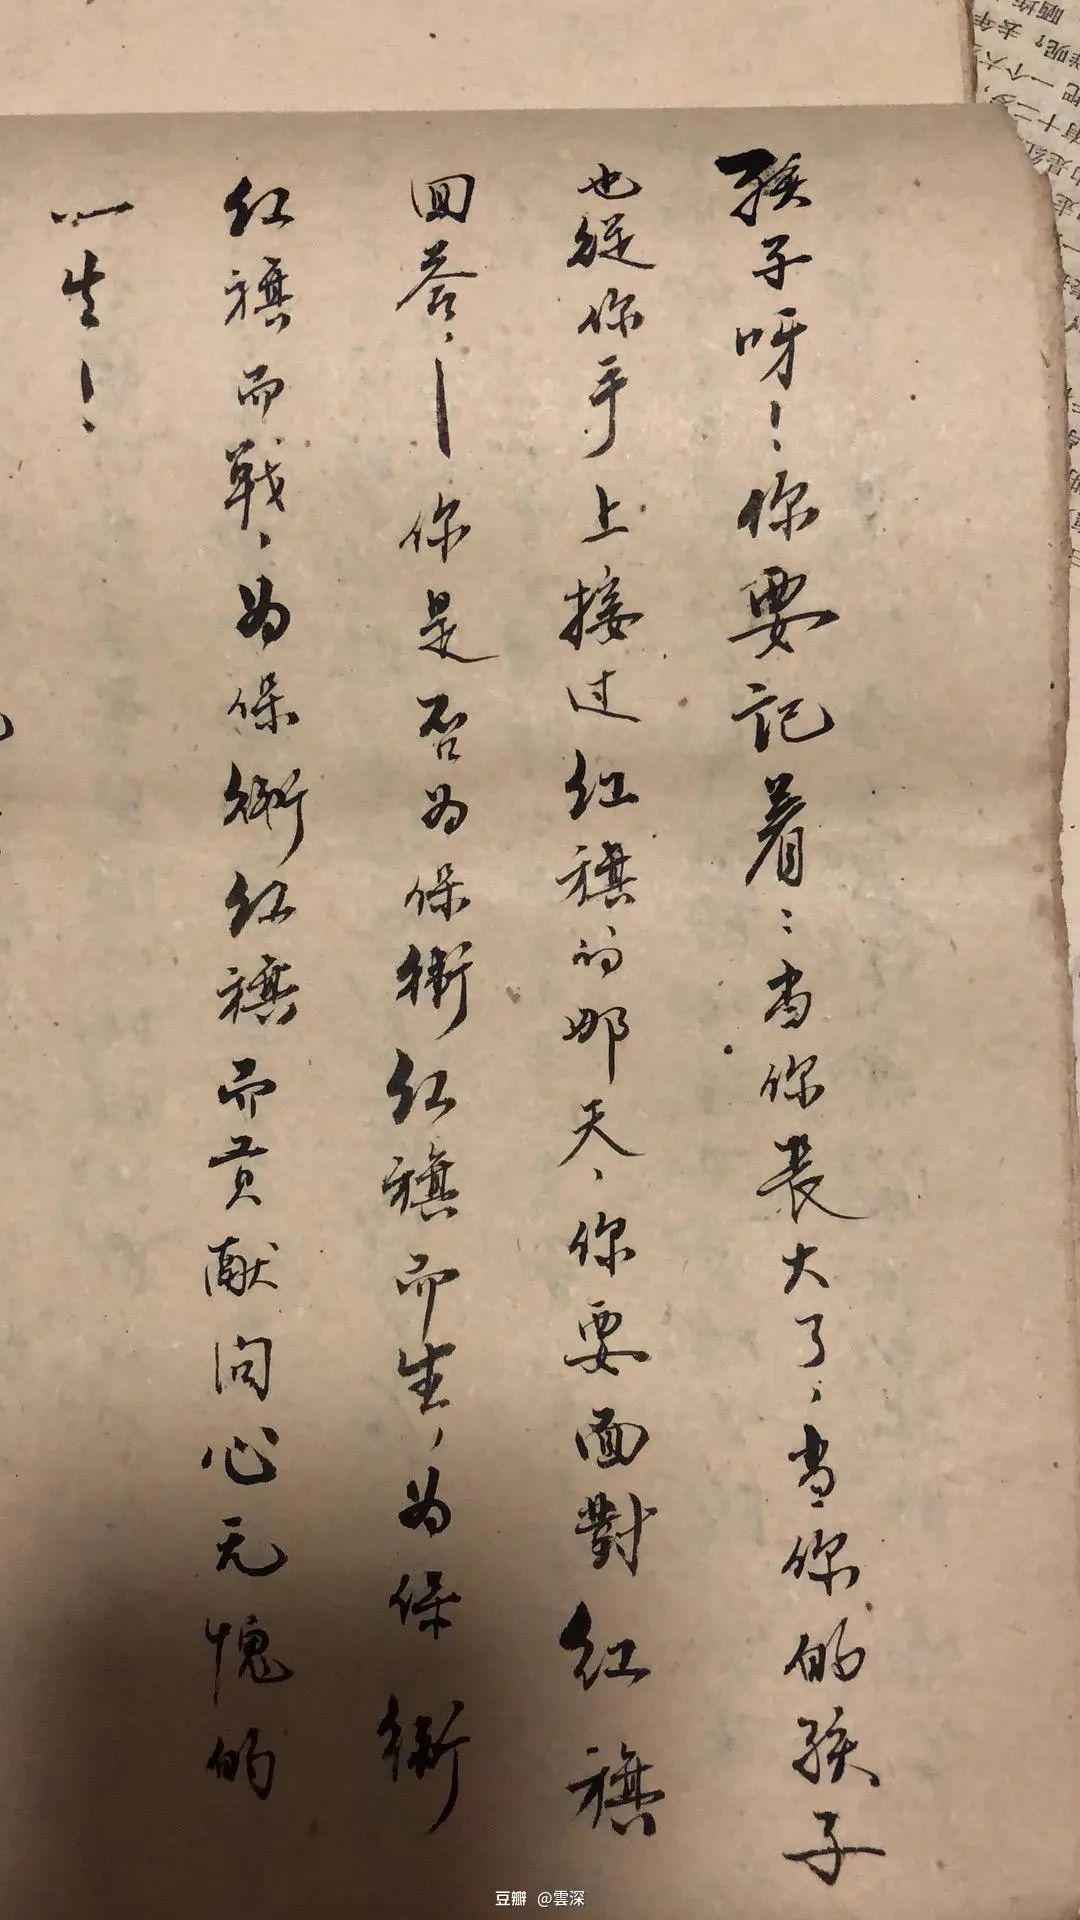 孩子呀！你要記着：当你長大了，当你的孩子
也從你手上接过红旗的那天，你要面對红旗
回答，—你是否为保衛红旗而生，为保衛
红旗而戰，为保衛红旗而贡献问心无愧的
一生！
豆瓣 @雲深